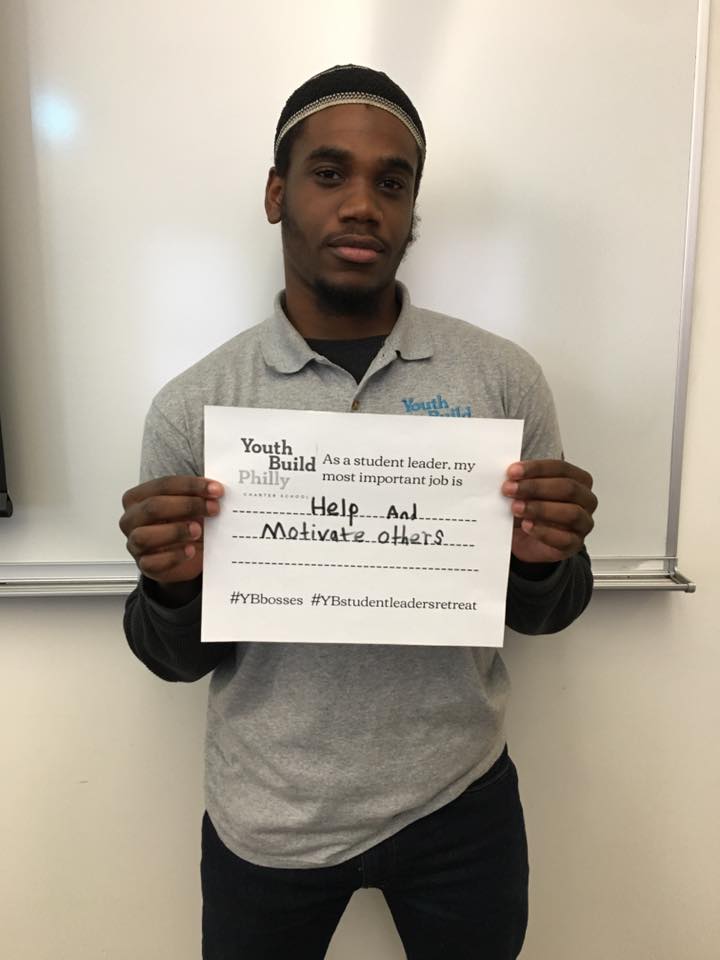 Youth
Build
Youth
Build
Philly
CHARTER SCHOOL
As a student leader, my
most important job is
Help And
Motivate others
#YBbosses #YBstudentleadersretreat